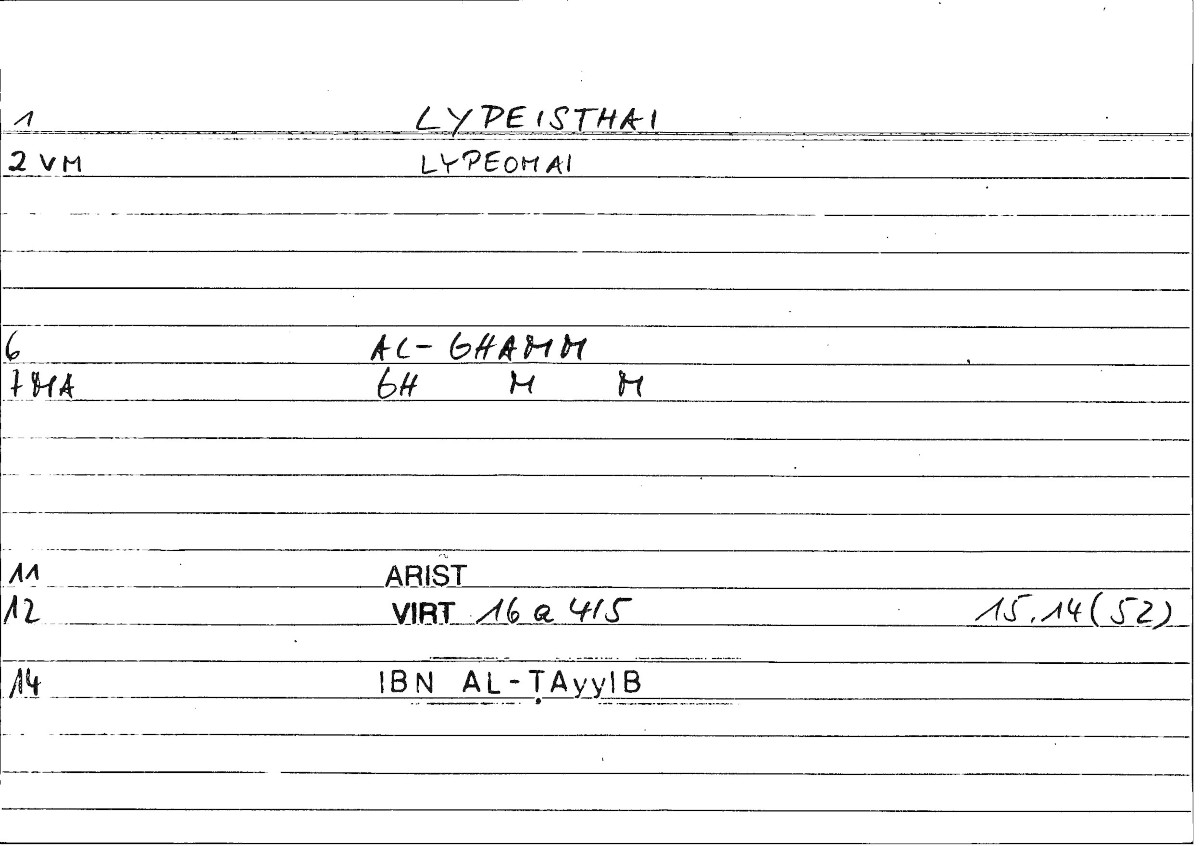 1 LYPEISTHAI
2 VM LYPEOMAI
6 AL-GHAMM
7 MA GH M M
11 ARIST
12 VIRT 16 a 4/5 15.14(52)
14 IBN AL-ṬAyyIB